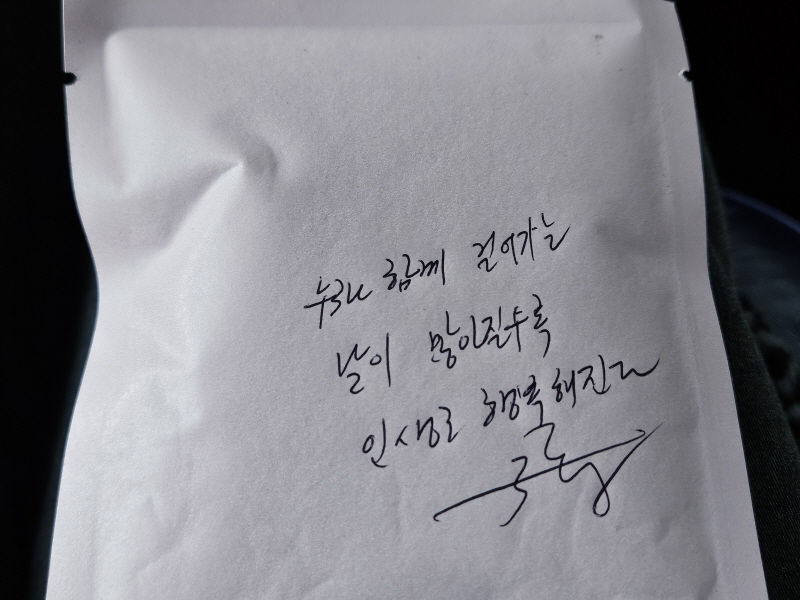 함께 걸어가는
날이 많아질수록
인생도 행복해진다